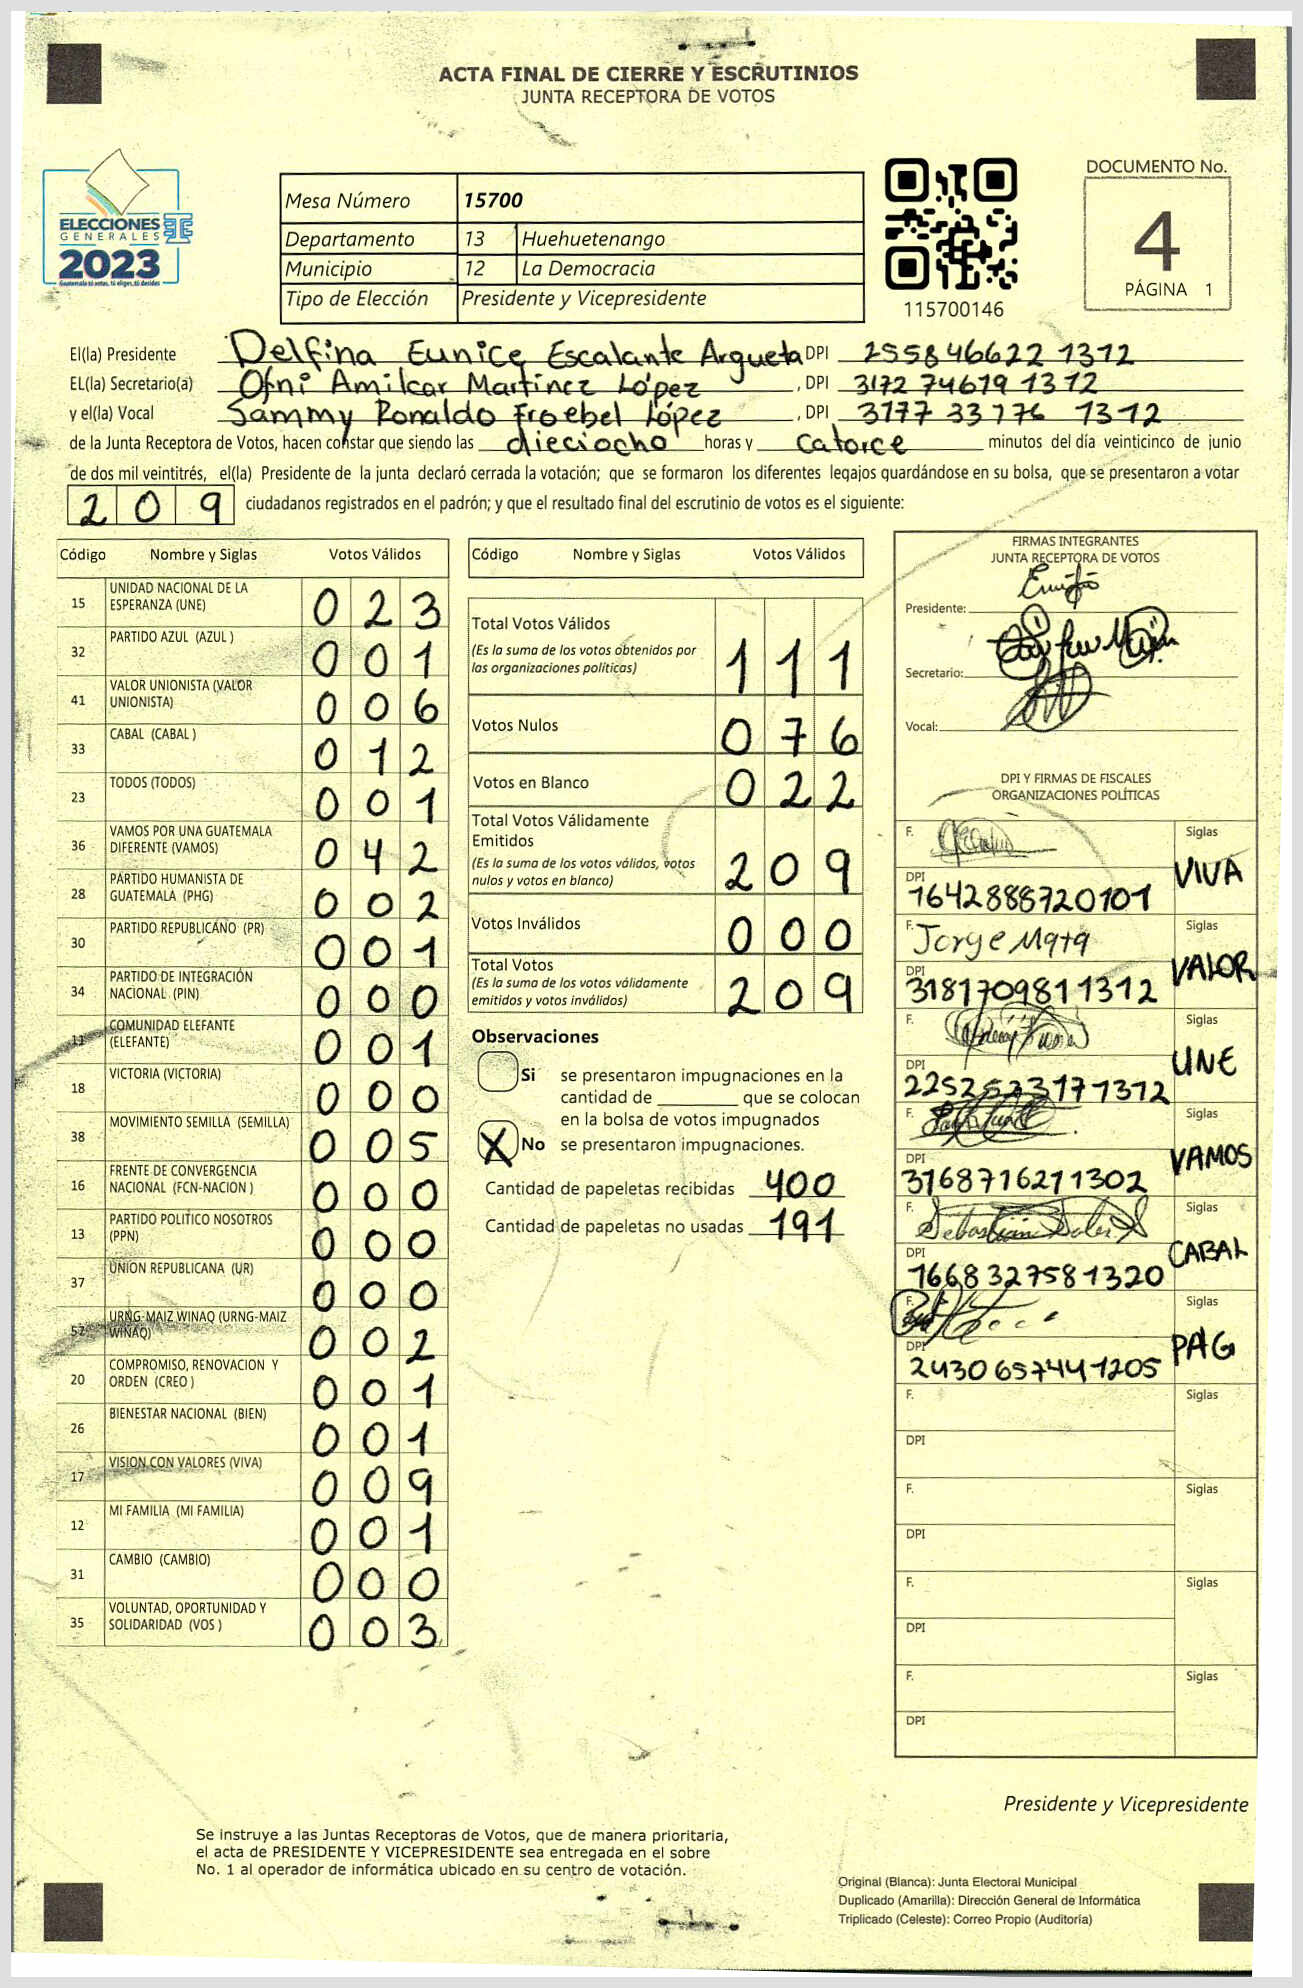 ACTA FINAL DE CIERRE Y ESCRUTINIOS
JUNTA RECEPTORA DE VOTOS
ELECCIONES
GENERALES
2023
Guatemala tú votas, tú eliges, tú decides
Mesa Número 15700
Departamento 13 Huehuetenango
Municipio 12 La Democracia
Tipo de Elección Presidente y Vicepresidente
115700146
DOCUMENTO No.
4
PÁGINA 1
El(la) Presidente Delfina Eunice Escalante Argueta DPI 255846622 1312
EL(la) Secretario(a) Ofni Amilcar Martínez López, DPI 3172 74619 1312
y el(la) Vocal Sammy Ronaldo Froebel López, DPI 3177 33776 1312
de la Junta Receptora de Votos, hacen constar que siendo las dieciocho horas y catorce minutos del día veinticinco de junio
de dos mil veintitrés, el(la) Presidente de la junta declaró cerrada la votación; que se formaron los diferentes legajos guardándose en su bolsa, que se presentaron a votar
209 ciudadanos registrados en el padrón; y que el resultado final del escrutinio de votos es el siguiente:
Código Nombre y Siglas Votos Válidos
15 UNIDAD NACIONAL DE LA ESPERANZA (UNE) 023
32 PARTIDO AZUL (AZUL ) 001
41 VALOR UNIONISTA (VALOR UNIONISTA) 006
33 CABAL (CABAL ) 012
23 TODOS (TODOS) 001
36 VAMOS POR UNA GUATEMALA DIFERENTE (VAMOS) 042
28 PARTIDO HUMANISTA DE GUATEMALA (PHG) 002
30 PARTIDO REPUBLICANO (PR) 001
34 PARTIDO DE INTEGRACIÓN NACIONAL (PIN) 000
11 COMUNIDAD ELEFANTE (ELEFANTE) 001
18 VICTORIA (VICTORIA) 000
38 MOVIMIENTO SEMILLA (SEMILLA) 005
16 FRENTE DE CONVERGENCIA NACIONAL (FCN-NACION ) 000
13 PARTIDO POLITICO NOSOTROS (PPN) 000
37 UNION REPUBLICANA (UR) 000
52 URNG-MAIZ WINAQ (URNG-MAIZ WINAQ) 002
20 COMPROMISO, RENOVACION Y ORDEN (CREO ) 001
26 BIENESTAR NACIONAL (BIEN) 001
17 VISION CON VALORES (VIVA) 009
12 MI FAMILIA (MI FAMILIA) 001
31 CAMBIO (CAMBIO) 000
35 VOLUNTAD, OPORTUNIDAD Y SOLIDARIDAD (VOS ) 003
Código Nombre y Siglas Votos Válidos
Total Votos Válidos
(Es la suma de los votos obtenidos por
las organizaciones políticas) 111
Votos Nulos 076
Votos en Blanco 022
Total Votos Válidamente
Emitidos
(Es la suma de los votos válidos, votos
nulos y votos en blanco) 209
Votos Inválidos 000
Total Votos
(Es la suma de los votos válidamente
emitidos y votos inválidos) 209
Observaciones
Si se presentaron impugnaciones en la
cantidad de ________ que se colocan
en la bolsa de votos impugnados
X No se presentaron impugnaciones.
Cantidad de papeletas recibidas 400
Cantidad de papeletas no usadas 191
FIRMAS INTEGRANTES
JUNTA RECEPTORA DE VOTOS
Presidente:
Secretario:
Vocal:
DPI Y FIRMAS DE FISCALES
ORGANIZACIONES POLÍTICAS
F. Siglas
DPI VIVA
1642888720101
F. Jorge Mata Siglas
DPI VALOR
3181709811312
F. Siglas
DPI UNE
2252523171312
F. Siglas
DPI VAMOS
3168716211302
F. Siglas
DPI CABAL
1668327581320
F. Siglas
DPI PAG
2430657441205
F. Siglas
DPI
F. Siglas
DPI
F. Siglas
DPI
F. Siglas
DPI
Presidente y Vicepresidente
Se instruye a las Juntas Receptoras de Votos, que de manera prioritaria,
el acta de PRESIDENTE Y VICEPRESIDENTE sea entregada en el sobre
No. 1 al operador de informática ubicado en su centro de votación.
Original (Blanca): Junta Electoral Municipal
Duplicado (Amarilla): Dirección General de Informática
Triplicado (Celeste): Correo Propio (Auditoría)